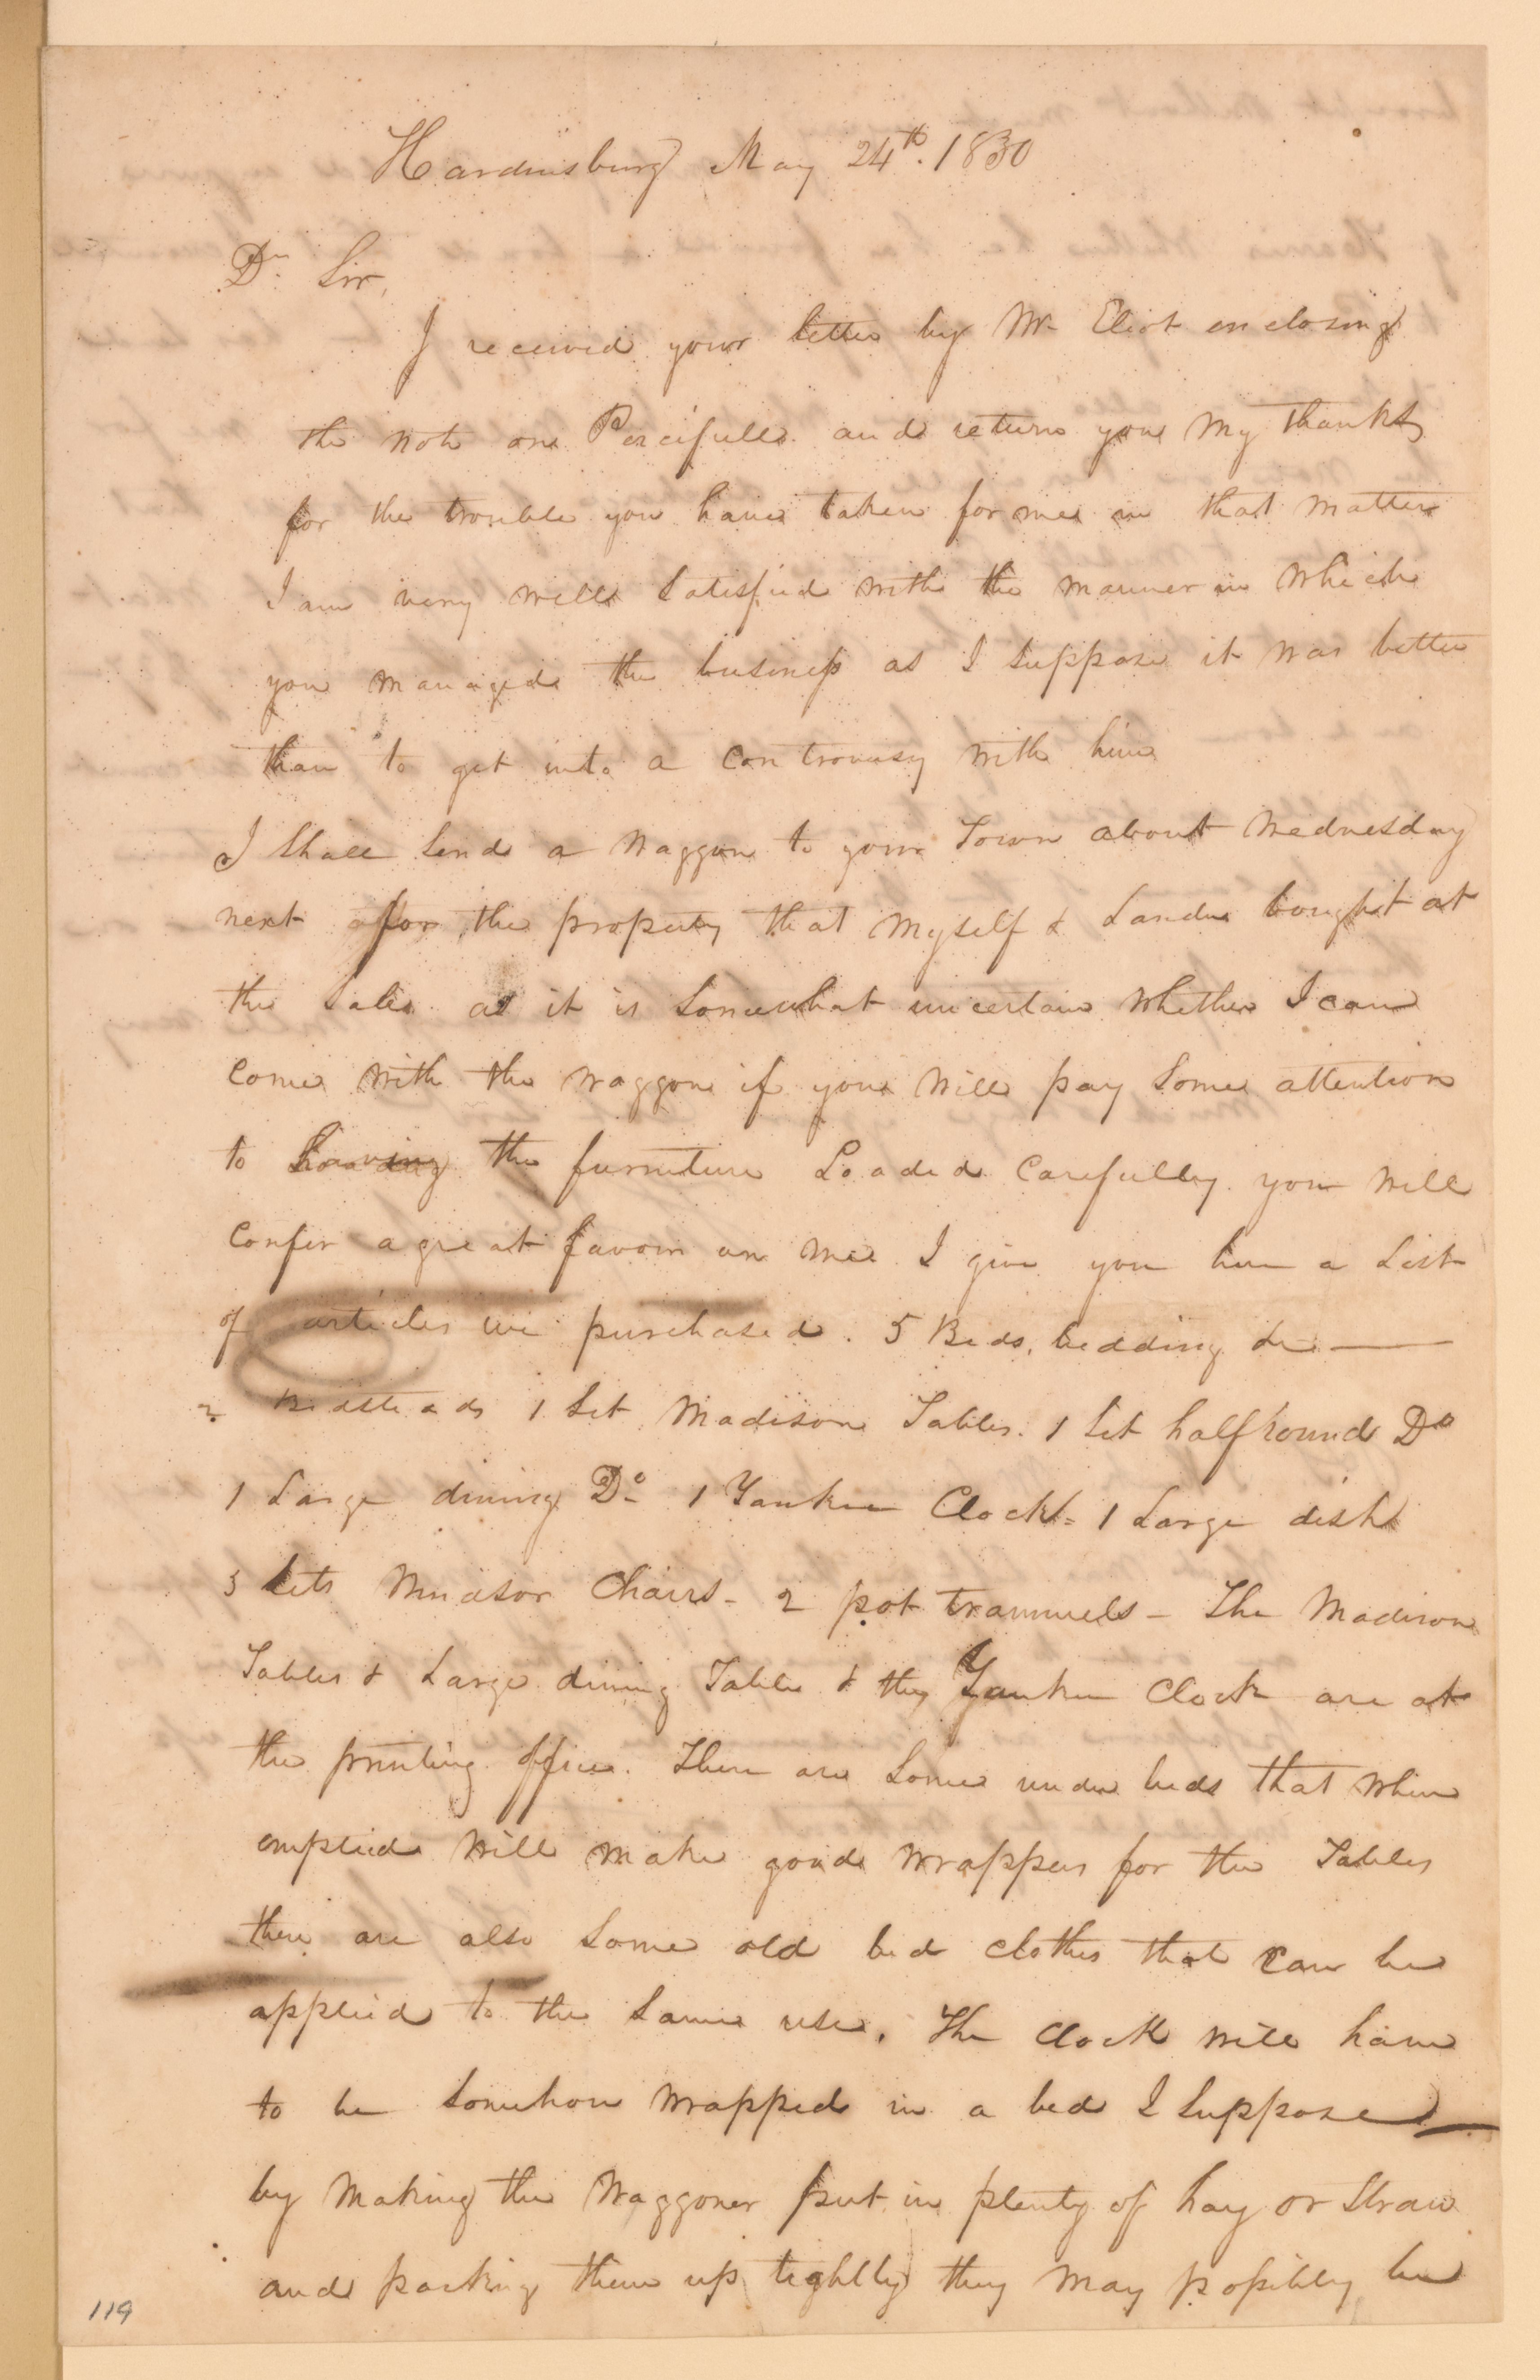 Hardinsburg May 24th. 1830
Dr. Sir,
I received your letter by Mr Eliot enclosing
the note on Percifull and return you my thanks
for the trouble you have taken for me in that matter
I am very well satisfied with the manner in which
you managed the business as I suppose it was better
than to get into a controversy with him
I shall send a waggon to your Town about Wednesday
next for the property that myself & Lander bought at
the sale as it is somewhat uncertain whether I can
come with the waggon if you will pay some attention
to having the furniture Loaded carefully you will
confer a great favour on me I give you here a List
of articles we purchased. 5 Beds, bedding &c —
2 Bedsteads 1 set Madison Tables. 1 set half round Do
1 Large dining Do 1 Yankee Clock - 1 Large dish
3 sets Windsor Chairs - 2 pot trammels - The Madison
Tables & Large dining Table & the Yankee Clock are at
the printing office. There are some under beds that when
emptied will make good wrappers for the Tables
there are also some old bed clothes that can be
applied to the same use. The clock will have
to be somehow wrapped in a bed I suppose —
by making the Waggoner put in plenty of hay or straw
and packing them up tightly they may possibly be
119